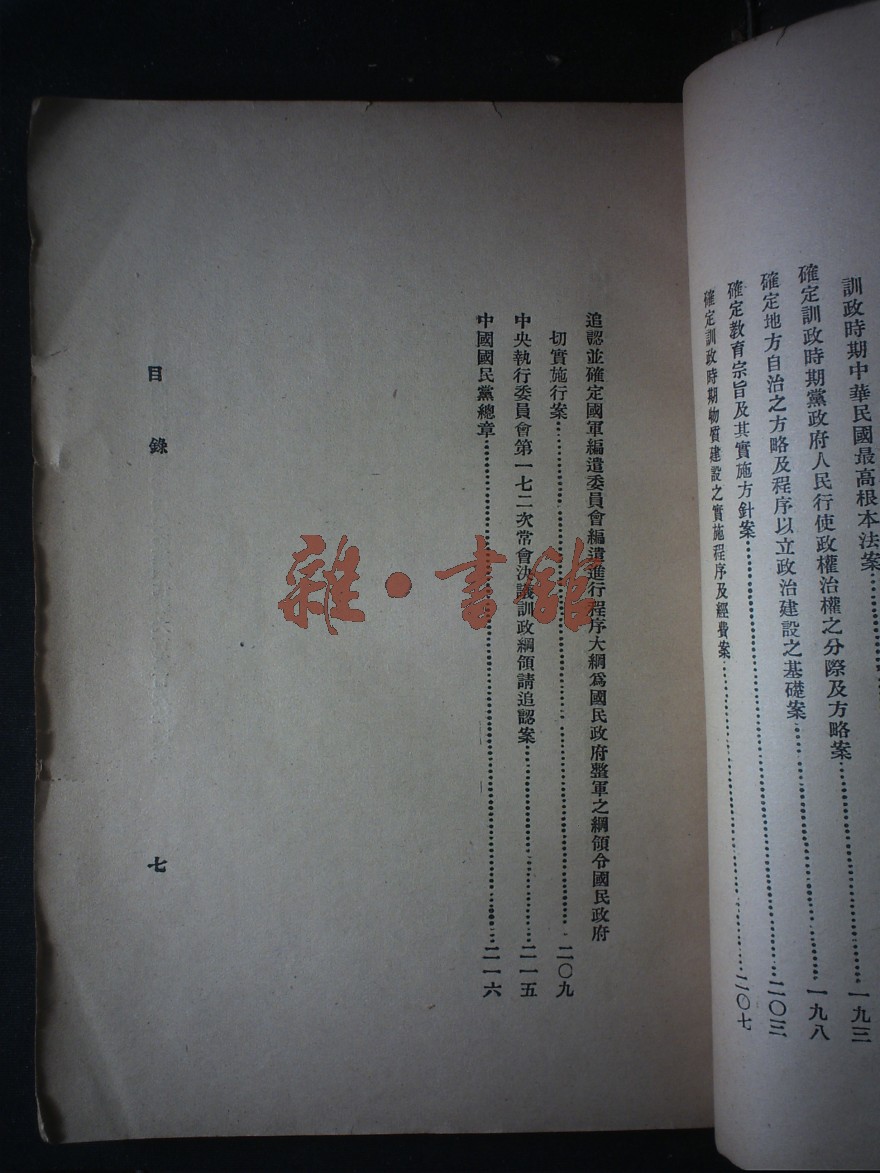 訓政時期中華民國最高根本法案⋯⋯一九三
確定訓政時期黨政府人民行使政權治權之分際及方略案⋯⋯一九八
確定地方自治之方略及程序以立政治建設之基礎案⋯⋯二〇三
確定教育宗旨及其實施方針案⋯⋯二〇七
確定訓政時期物質建設之實施程序及經費案⋯⋯
追認並確定國軍編遣委員會編遣進行程序大綱爲國民政府整軍之綱領令國民政府
切實施行案⋯⋯二〇九
中央執行委員會第一七二次常會決議訓政綱領請追認案⋯⋯二一五
中國國民黨總章⋯⋯二一六
目錄
七
雜·書館